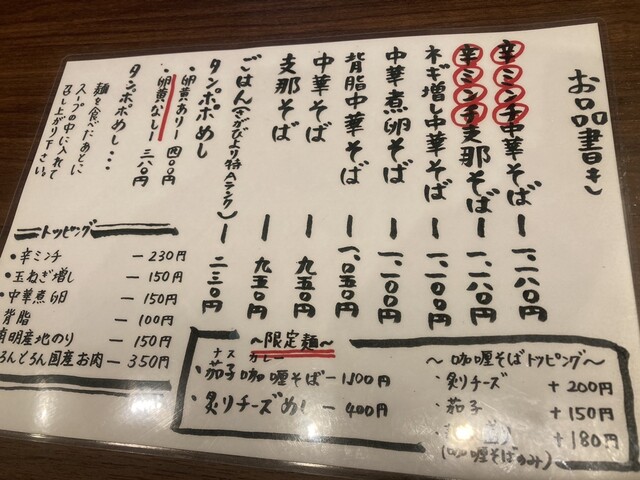 お品書き
辛ミンチ中華そばー一、一八〇円
辛ミンチ支那そばー一、一八〇円
ネギ増し中華そばー一、一〇〇円
中華煮卵そばー一、一〇〇円
背脂中華そばー一、〇五〇円
中華そばー九五〇円
支那そばー九五〇円
ごはん(さがびより特Aランク)ー二三〇円
タンポポめし
・卵黄ありー四〇〇円
・卵黄なしー三八〇円
タンポポめし…
麺を食べたあとに
スープの中に入れて
召し上がり下さい。
トッピング
・辛ミンチ ー230円
・玉ねぎ増し ー150円
・中華煮卵 ー150円
背脂 ー100円
有明産地のり ー150円
とろんとろん国産お肉ー350円
〜限定麺〜
ナス カレー
・茄子咖喱そばー1,100円
・炙りチーズめしー400円
〜咖喱そばトッピング〜
・炙りチーズ +200円
・茄子 +150円
+180円
(咖喱そばのみ)